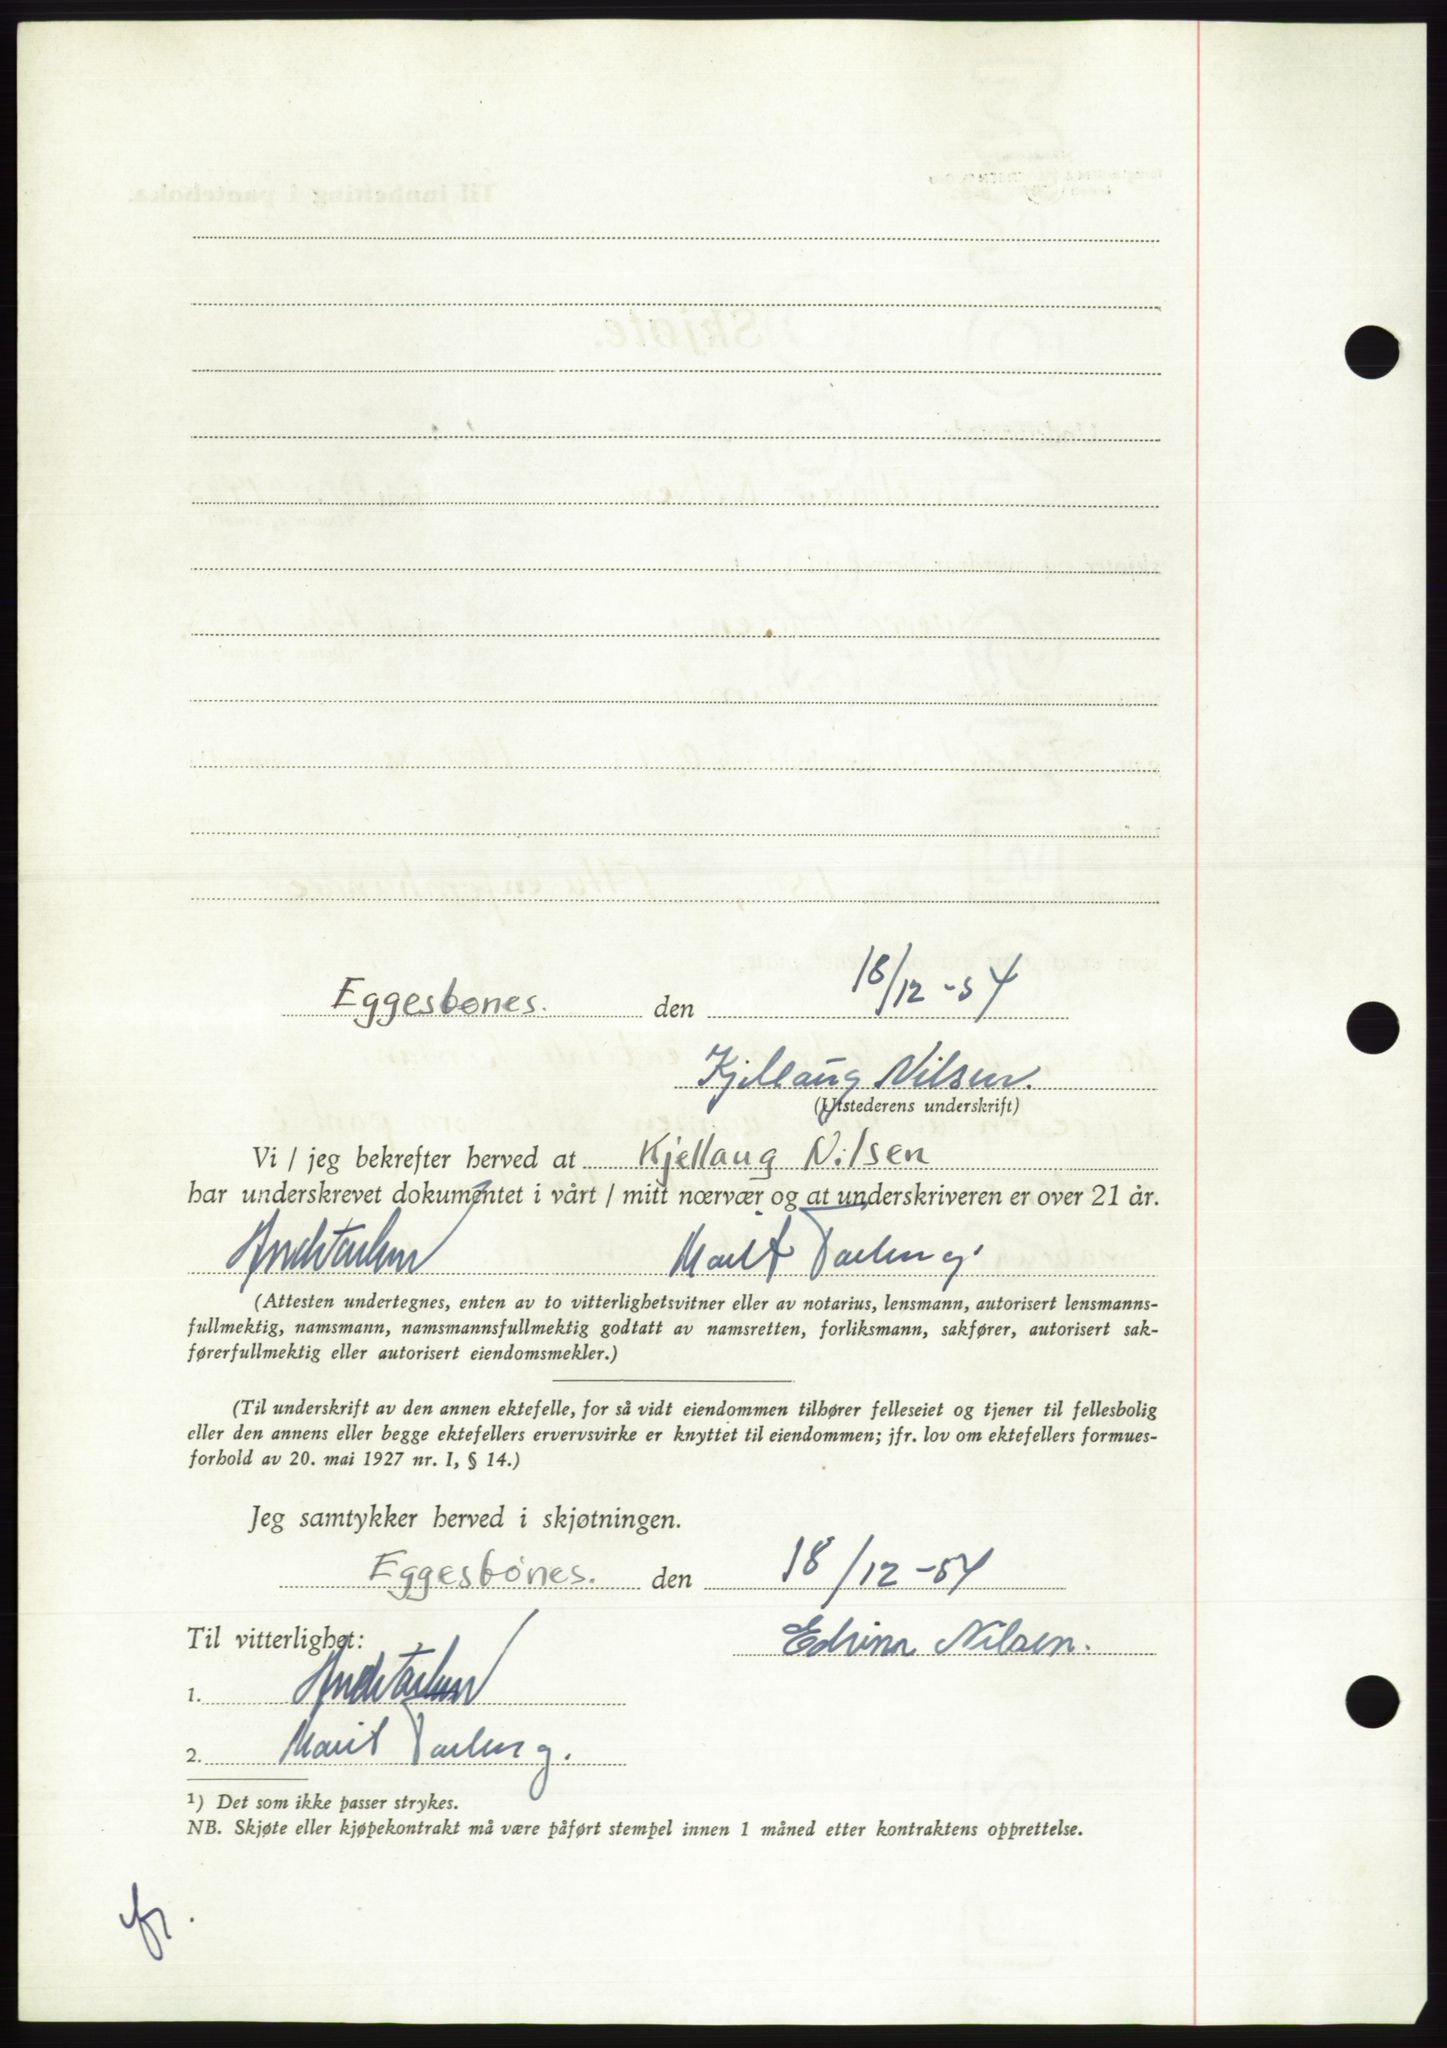 Eggesbønes. den 18/12-54
Kjellaug Nilsen.
(Utstederens underskrift)
Vi / jeg bekrefter herved at Kjellaug Nilsen
har underskrevet dokumentet i vårt / mitt nærvær og at underskriveren er over 21 år.
Marit
(Attesten undertegnes, enten av to vitterlighetsvitner eller av notarius, lensmann, autorisert lensmanns-
fullmektig, namsmann, namsmannsfullmektig godtatt av namsretten, forliksmann, sakfører, autorisert sak-
førerfullmektig eller autorisert eiendomsmekler.)
(Til underskrift av den annen ektefelle, for så vidt eiendommen tilhører felleseiet og tjener til fellesbolig
eller den annens eller begge ektefellers ervervsvirke er knyttet til eiendommen; jfr. lov om ektefellers formues-
forhold av 20. mai 1927 nr. 1, § 14.)
Jeg samtykker herved i skjøtningen.
Eggesbønes. den 18/12-54
Til vitterlighet: Nilsen.
1.
2. Marit
1) Det som ikke passer strykes.
NB. Skjøte eller kjøpekontrakt må være påført stempel innen 1 måned etter kontraktens opprettelse.